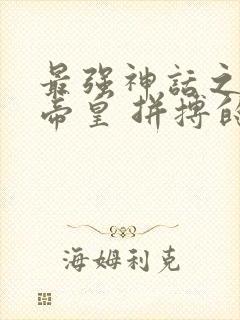 最强神话之
帝皇 拼搏的
海姆利克